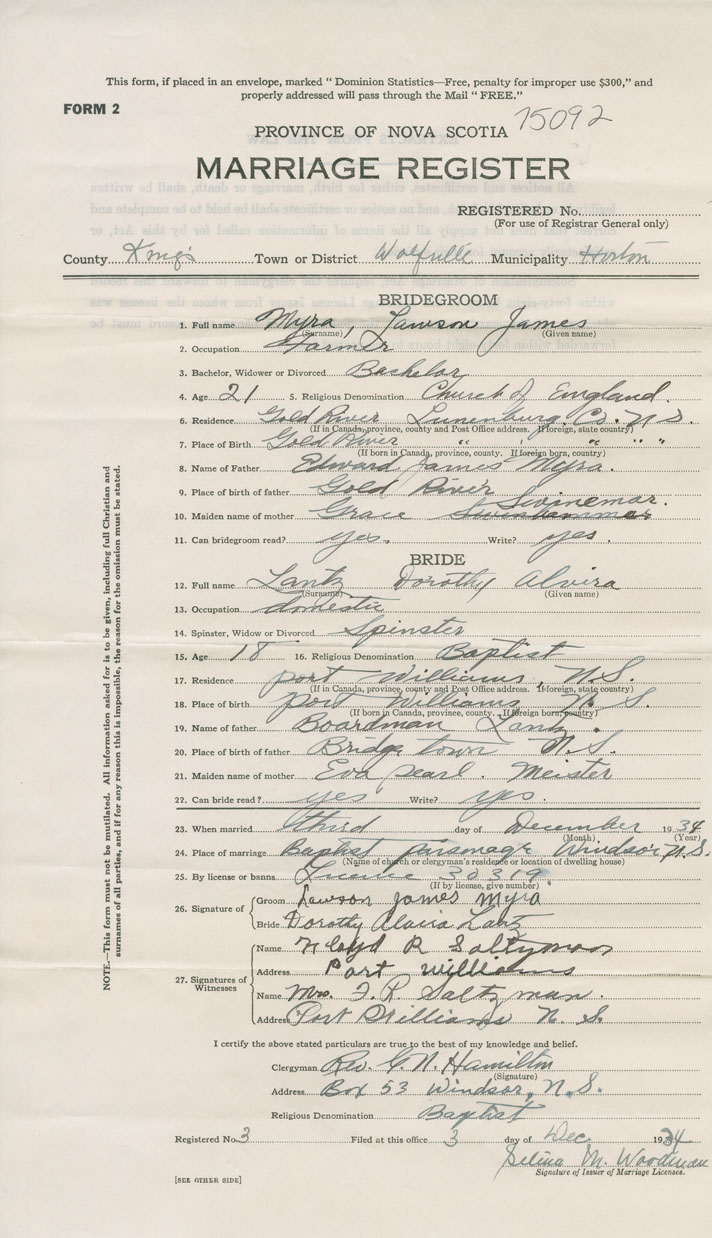 This form, if placed in an envelope, marked " Dominion Statistics—Free, penalty for improper use $300," and
properly addressed will pass through the Mail " FREE."
FORM 2
15092
PROVINCE OF NOVA SCOTIA
MARRIAGE REGISTER
REGISTERED No.
(For use of Registrar General only)
County Kings Town or District Wolfville Municipality Horton
BRIDEGROOM
1. Full name Myra, Lawson James
(Surname) (Given name)
2. Occupation Farmer
3. Bachelor, Widower or Divorced Bachelor
4. Age 21 5. Religious Denomination Church of England.
6. Residence Gold River Lunenburg. Co. N. S.
(If in Canada, province, county and Post Office address. If foreign, state country)
7. Place of Birth Gold River " " " "
(If born in Canada, province, county. If foreign born, country)
8. Name of Father Edward James Myra.
9. Place of birth of father Gold River
Swinemar.
10. Maiden name of mother Grace
11. Can bridegroom read? yes. Write? yes.
BRIDE
12. Full name Lantz Dorothy Alvira
(Surname) (Given name)
13. Occupation domestic
14. Spinster, Widow or Divorced Spinster
15. Age 18 16. Religious Denomination Baptist
17. Residence port Williams, N.S.
(If in Canada, province, county and Post Office address. If foreign, state country)
18. Place of birth port Williams N. S.
(If born in Canada, province, county. If foreign born, country)
19. Name of father Boardman Lantz.
20. Place of birth of father Bridge town N.S.
21. Maiden name of mother Eva pearl. Meister
22. Can bride read? yes Write? yes.
23. When married third day of December 1934
(Month) (Year)
24. Place of marriage Baptist parsonage Windsor N.S.
(Name of church or clergyman's residence or location of dwelling house)
25. By license or banns License 30319
(If by license, give number)
26. Signature of
Groom Lawson James Myra
Bride Dorothy Alvira Lantz
27. Signatures of Witnesses
Name R Saltzman
Address Port williams
Name Mrs. F. R. Saltzman.
Address Port Williams N. S.
I certify the above stated particulars are true to the best of my knowledge and belief.
Clergyman Rev. G. N. Hamilton
(Signature)
Address Box 53 Windsor, N.S.
Religious Denomination Baptist
Registered No. 3 Filed at this office 3 day of Dec. 1934
Selina M. Woodman
Signature of Issuer of Marriage Licenses.
[SEE OTHER SIDE]
NOTE.—This form must not be mutilated. All information asked for is to be given, including full Christian and
surnames of all parties, and if for any reason this is impossible, the reason for the omission must be stated.